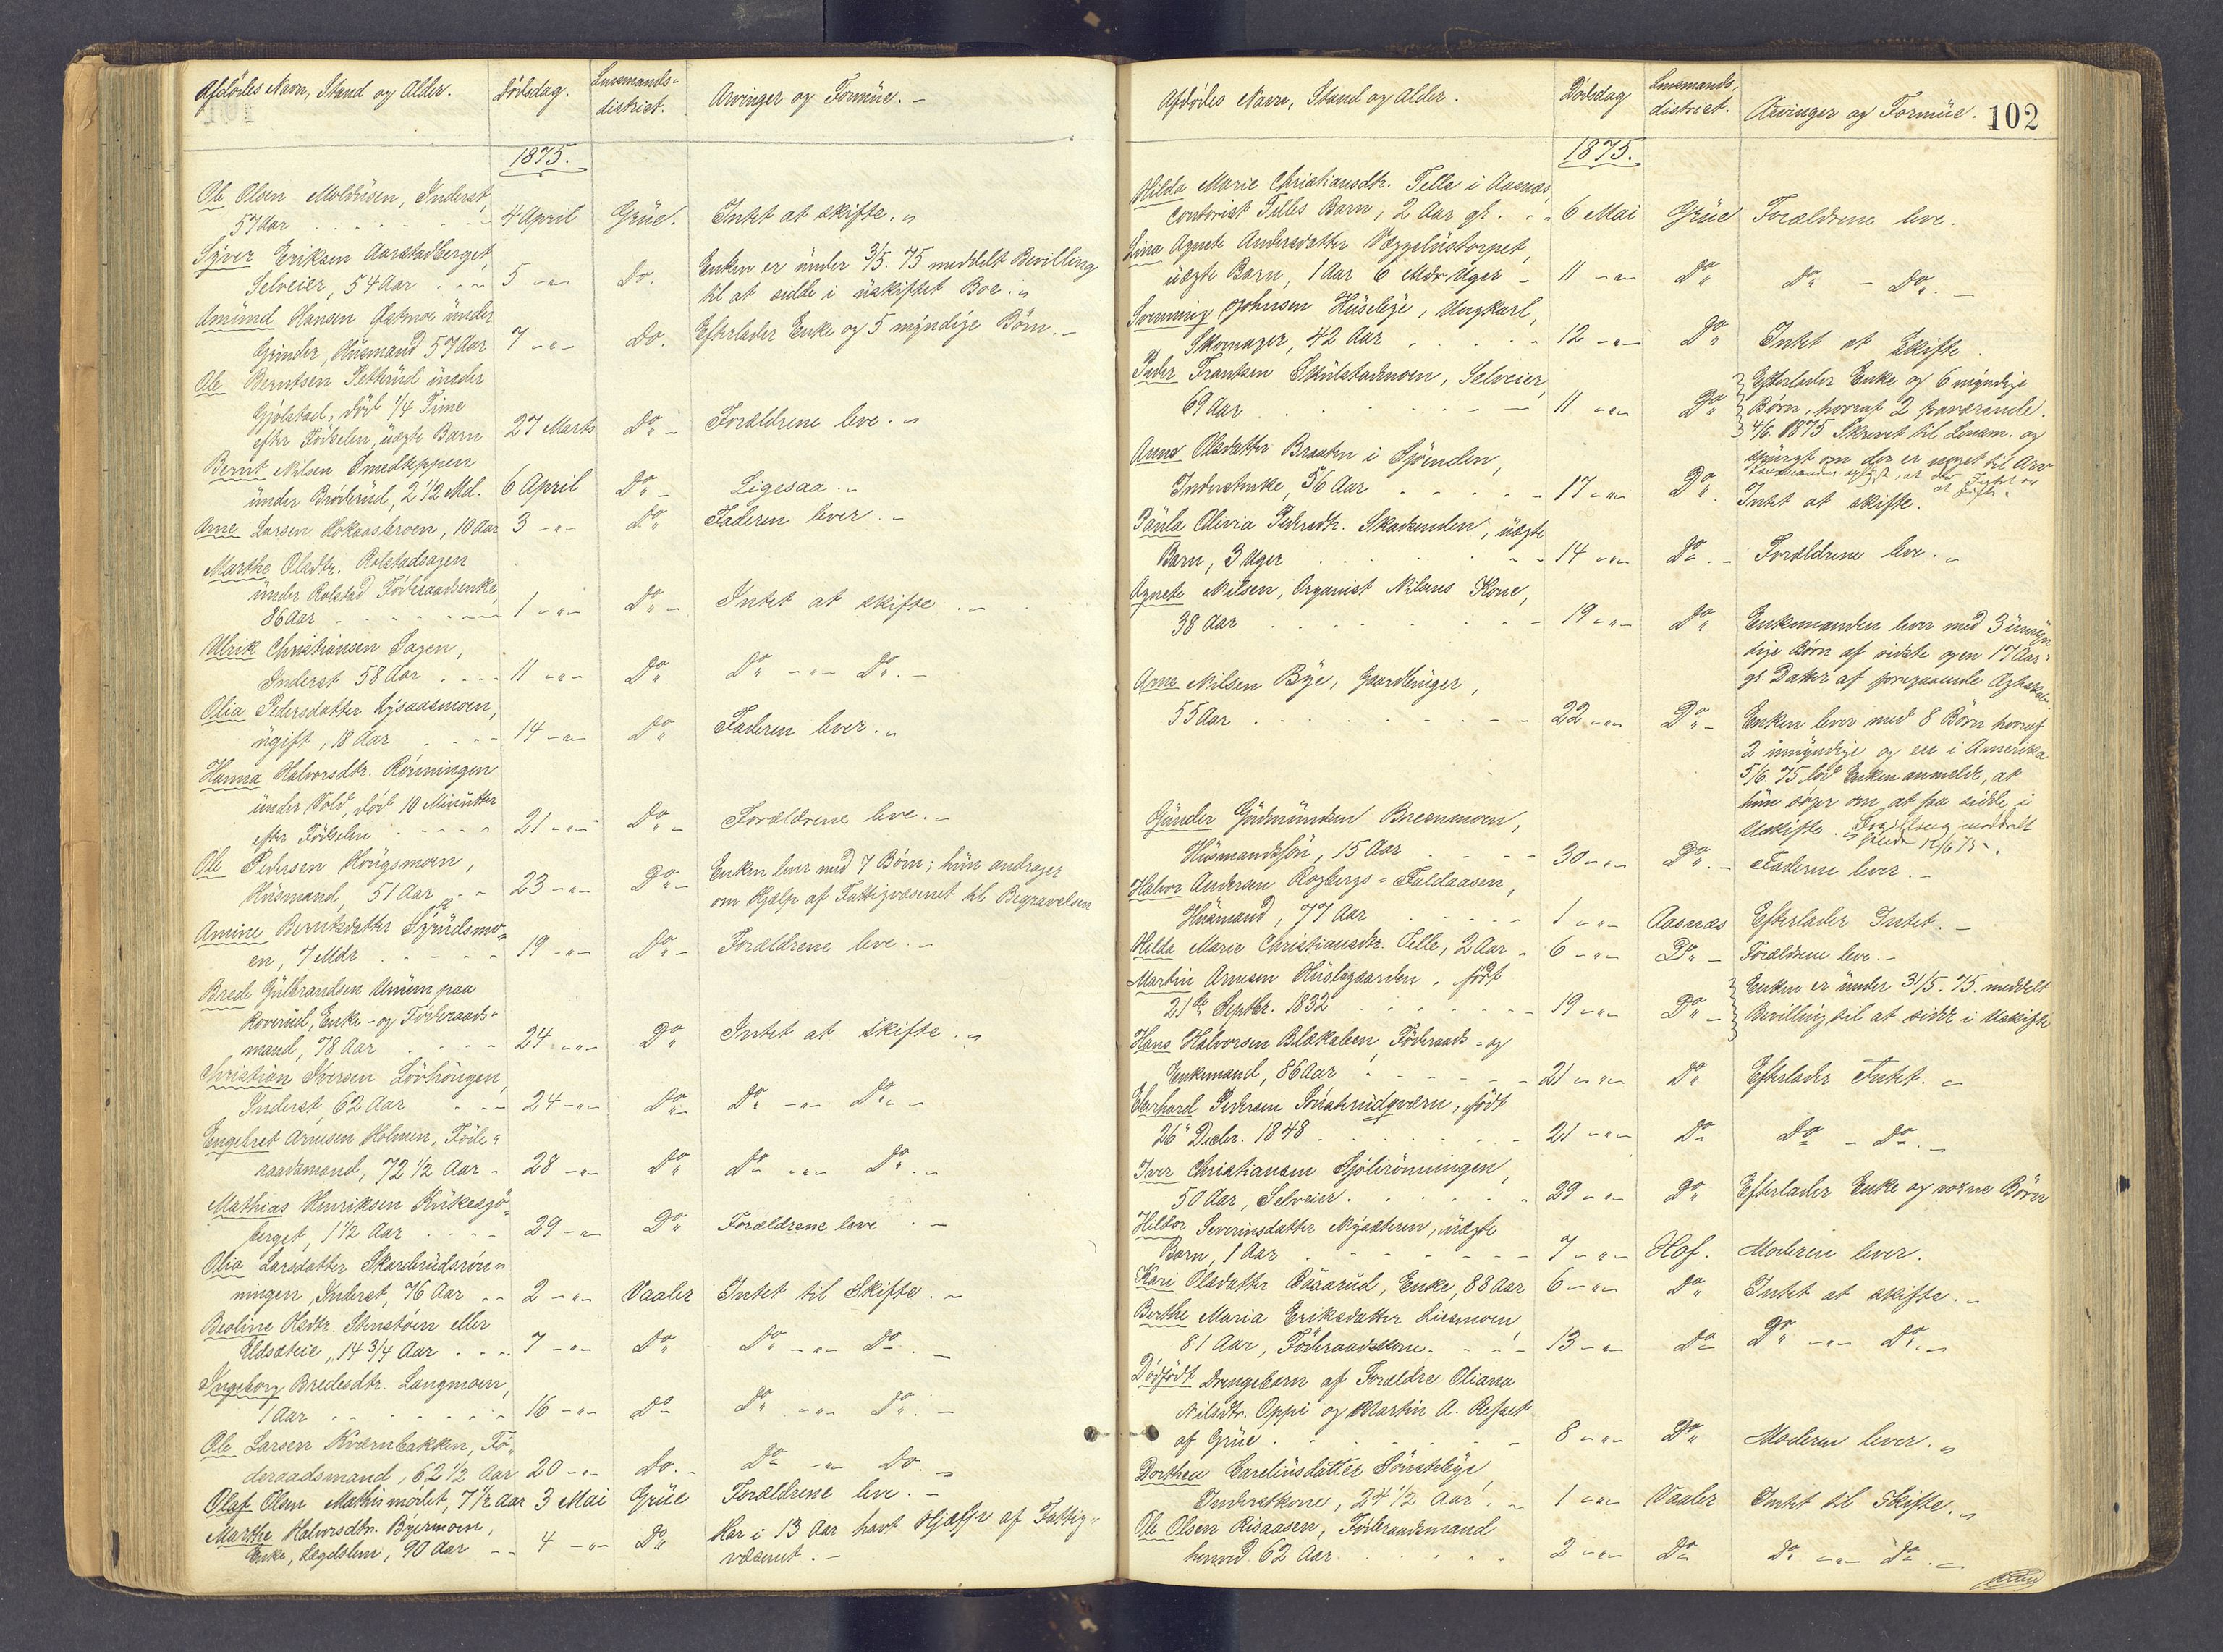 Afdødes Navn, Stand og Alder.
Dødsdag.
Lensmands-
district.
Arvinger og Formue. -
1875.
Ole Olsen Moldusen, Inderst,
57 Aar 4 April Grue. Intet at skifte. "
Syver Eriksen Aarstadberget,
Selveier, 54 Aar 5 - " - Do. Enken er under 3/5. 75 meddelt Bevilling
til at sidde i uskiftet Boe. "
Amund Hansen Østmoe under
Grinder, Husmand 57 Aar 7 - " - Do. Efterlader Enke og 5 myndige Børn. -
Ole Berntsen Petterud under
Gjølstad, død 1/4 Time
efter Fødselen, uægte Barn 27 Marts Do - Forældrene leve. "
Bernt Nilsen Smedteppen
under Brøderud, 2 1/2 Md. 6 April Do - Ligesaa. "
Arne Larsen Hokaasbroen, 10 Aar 3 - " - Do Faderen lever. -
Marthe Olsdtr. Rolstadsagen
under Rolstad Føderaadsenke,
86 Aar 1 - " - Do - Intet at skifte. "
Ulrik Christiansen Sagen,
Inderst 58 Aar 11 - " - Do Do - " - Do. -
Olia Pedersdatter Lysaasmoen,
ugift, 18 Aar 14 - " - Do Faderen lever. "
Hanna Halvorsdtr. Rønningen
under Vold, død 10 Minutter
efter Fødselen 21 - " - Do - Forældrene leve. -
Ole Pedersen Haugsmoen,
Husmand, 51 Aar 23 - " - Do - Enken lever med 7 Børn; hun andrager
om Hjælp af Fattigvæsenet til Begravelsen
Amine Berntsdatter Syrudsmo-
en, 7 Mdr 19 - " - Do - Forældrene leve. -
Brede Gulbrandsen Unum paa
Roverud, Enke- og Føderaads-
mand, 78 Aar 24 - " - Do Intet at skifte. "
Christian Iversen Løvhaugen,
Inderst, 62 Aar 24 - " - Do Do - " - Do. -
Engebret Arnesen Holmen, Føde-
raadsmand, 72 1/2 Aar - 28 - " - Do Do - " - Do. "
Mathias Henriksen Kuksjø-
berget, 1 1/2 Aar 29 - " - Do Forældrene leve. -
Olia Larsdatter Skarderudsrøn-
ningen, Inderst, 76 Aar 2 - " - Vaaler Intet til Skifte. -
Beoline Olsdtr. Stenstøen eller
Eldsæteie, 14 3/4 Aar 7 - " - Do Do - " - Do. -
Ingeborg Bredesdtr. Langmoen,
1 Aar 16 - " - Do Do - " - Do. -
Ole Larsen Kværnbakken, Fø-
deraadsmand, 62 1/2 Aar 20 - " - Do. Do - " - Do. -
Olaf Olsen Mathismørket, 7 1/2 Aar 3 Mai Grue Forældrene leve. -
Marthe Halvorsdtr. Byermoen,
Enke, Lægdslem, 90 Aar 4 - " - Do Har i 13 Aar havt Hjælp af Fattig-
væsenet. -
Afdødes Navn, Stand og Alder.
Dødsdag
Lensmands-
district.
Arvinger og Formue.
102
1875.
Hilda Marie Christiansdtr. Telle i Aasnæs,
Contorist Telles Barn, 2 Aar gl. 6 Mai Grue Forældrene leve.
Lina Agnete Andersdatter Væggelustorpet,
uægte Barn, 1 Aar 6 Mdr Uger - 11 - " - Do Do - Do. -
Svenning Johnsen Huseby, Ungkarl,
Skomager, 42 Aar 12 - " - Do Intet at Skifte.
Peder Frantsen Skulstadmoen, Selveier,
69 Aar 11 - " - Do Efterlader Enke og 6 myndige
Børn, hvoraf 2 fraværende.
4/6. 1875 Skrevet til Lensm. og
spurgt om der er noget til Arv
Lensmanden oplyst, at der Intet er
at skifte.
Anne Olsdatter Braaten i Sjøenden,
Inderstenke, 56 Aar 17 - " - Do. Intet at skifte.
Paula Olivia Pedersdtr. Skadsenden, uægte
Barn, 3 Uger 14 - " - Do. - Forældrene leve. "
Agnete Nilsen, Organist Nilsens Kone,
38 Aar 19 - " - Do Enkemanden lever med 3 umyn
dige Børn af sidste og en 17 Aar
gl. Datter af foregaaende Ægteskab.
Arne Nilsen Bye, Gaardbruger,
55 Aar 22 - " - Do - Enken lever med 8 Børn hvoraf
2 umyndige og en i Amerika
5/6. 75 lod Enken anmelde, at
hun søger om at faa sidde i
Uskifte. Bevilling meddelt
12/6 75.
Gunder Gudmundsen Bresnemoen,
Husmandssøn, 15 Aar 30 - " - Do. - Faderen lever. -
Halvor Andersen Rogbergs-Faldaasen,
Husmand, 77 Aar 1 - " - Aasnæs Efterlader Intet. -
Hilda Marie Christiansdtr. Telle, 2 Aar - 6 - " - Do - Forældrene leve. -
Martin Arnesen Huslegaarden, født
21de Septbr. 1832 19 - " - Do - Enken er under 31/5. 75. meddelt
Bevilling til at sidde i Uskifte
Hans Halvorsen Blækaleen, Føderaads- og
Enkemand, 86 Aar 21 - " - Do Efterlader Intet. -
Eberhard Pedersen Sønsterudqværn, født
26" Decbr. 1848 21 - " - Do Do - Do. -
Iver Christiansen Sjølirønningen,
50 Aar, Selveier. 29 - " - Do Efterlader Enke og voxne Børn
Hildor Severinsdatter Nysæteren, uægte
Barn, 1 Aar 7 - " - Hof. Moderen lever.
Kari Olsdatter Baasarud, Enke, 88 Aar 6 - " - Do Intet at skifte. -
Berthe Maria Eriksdatter Liesmoen,
81 Aar, Føderaadskone. 13 - " - Do Do - " - Do. "
Dødfødt Drengebarn af Forældre Oliana
Nilsdtr. Oppi og Martin A. Refset
af Grue. 8 - " - Do Moderen lever. "
Dorthea Careliusdatter Sønsteby,
Inderstkone, 24 1/2 Aar. 1 - " - Vaaler Intet til Skifte. "
Ole Olsen Risaasen, Føderaadsmand
62 Aar. 2 - " - Do Do - " - Do. -